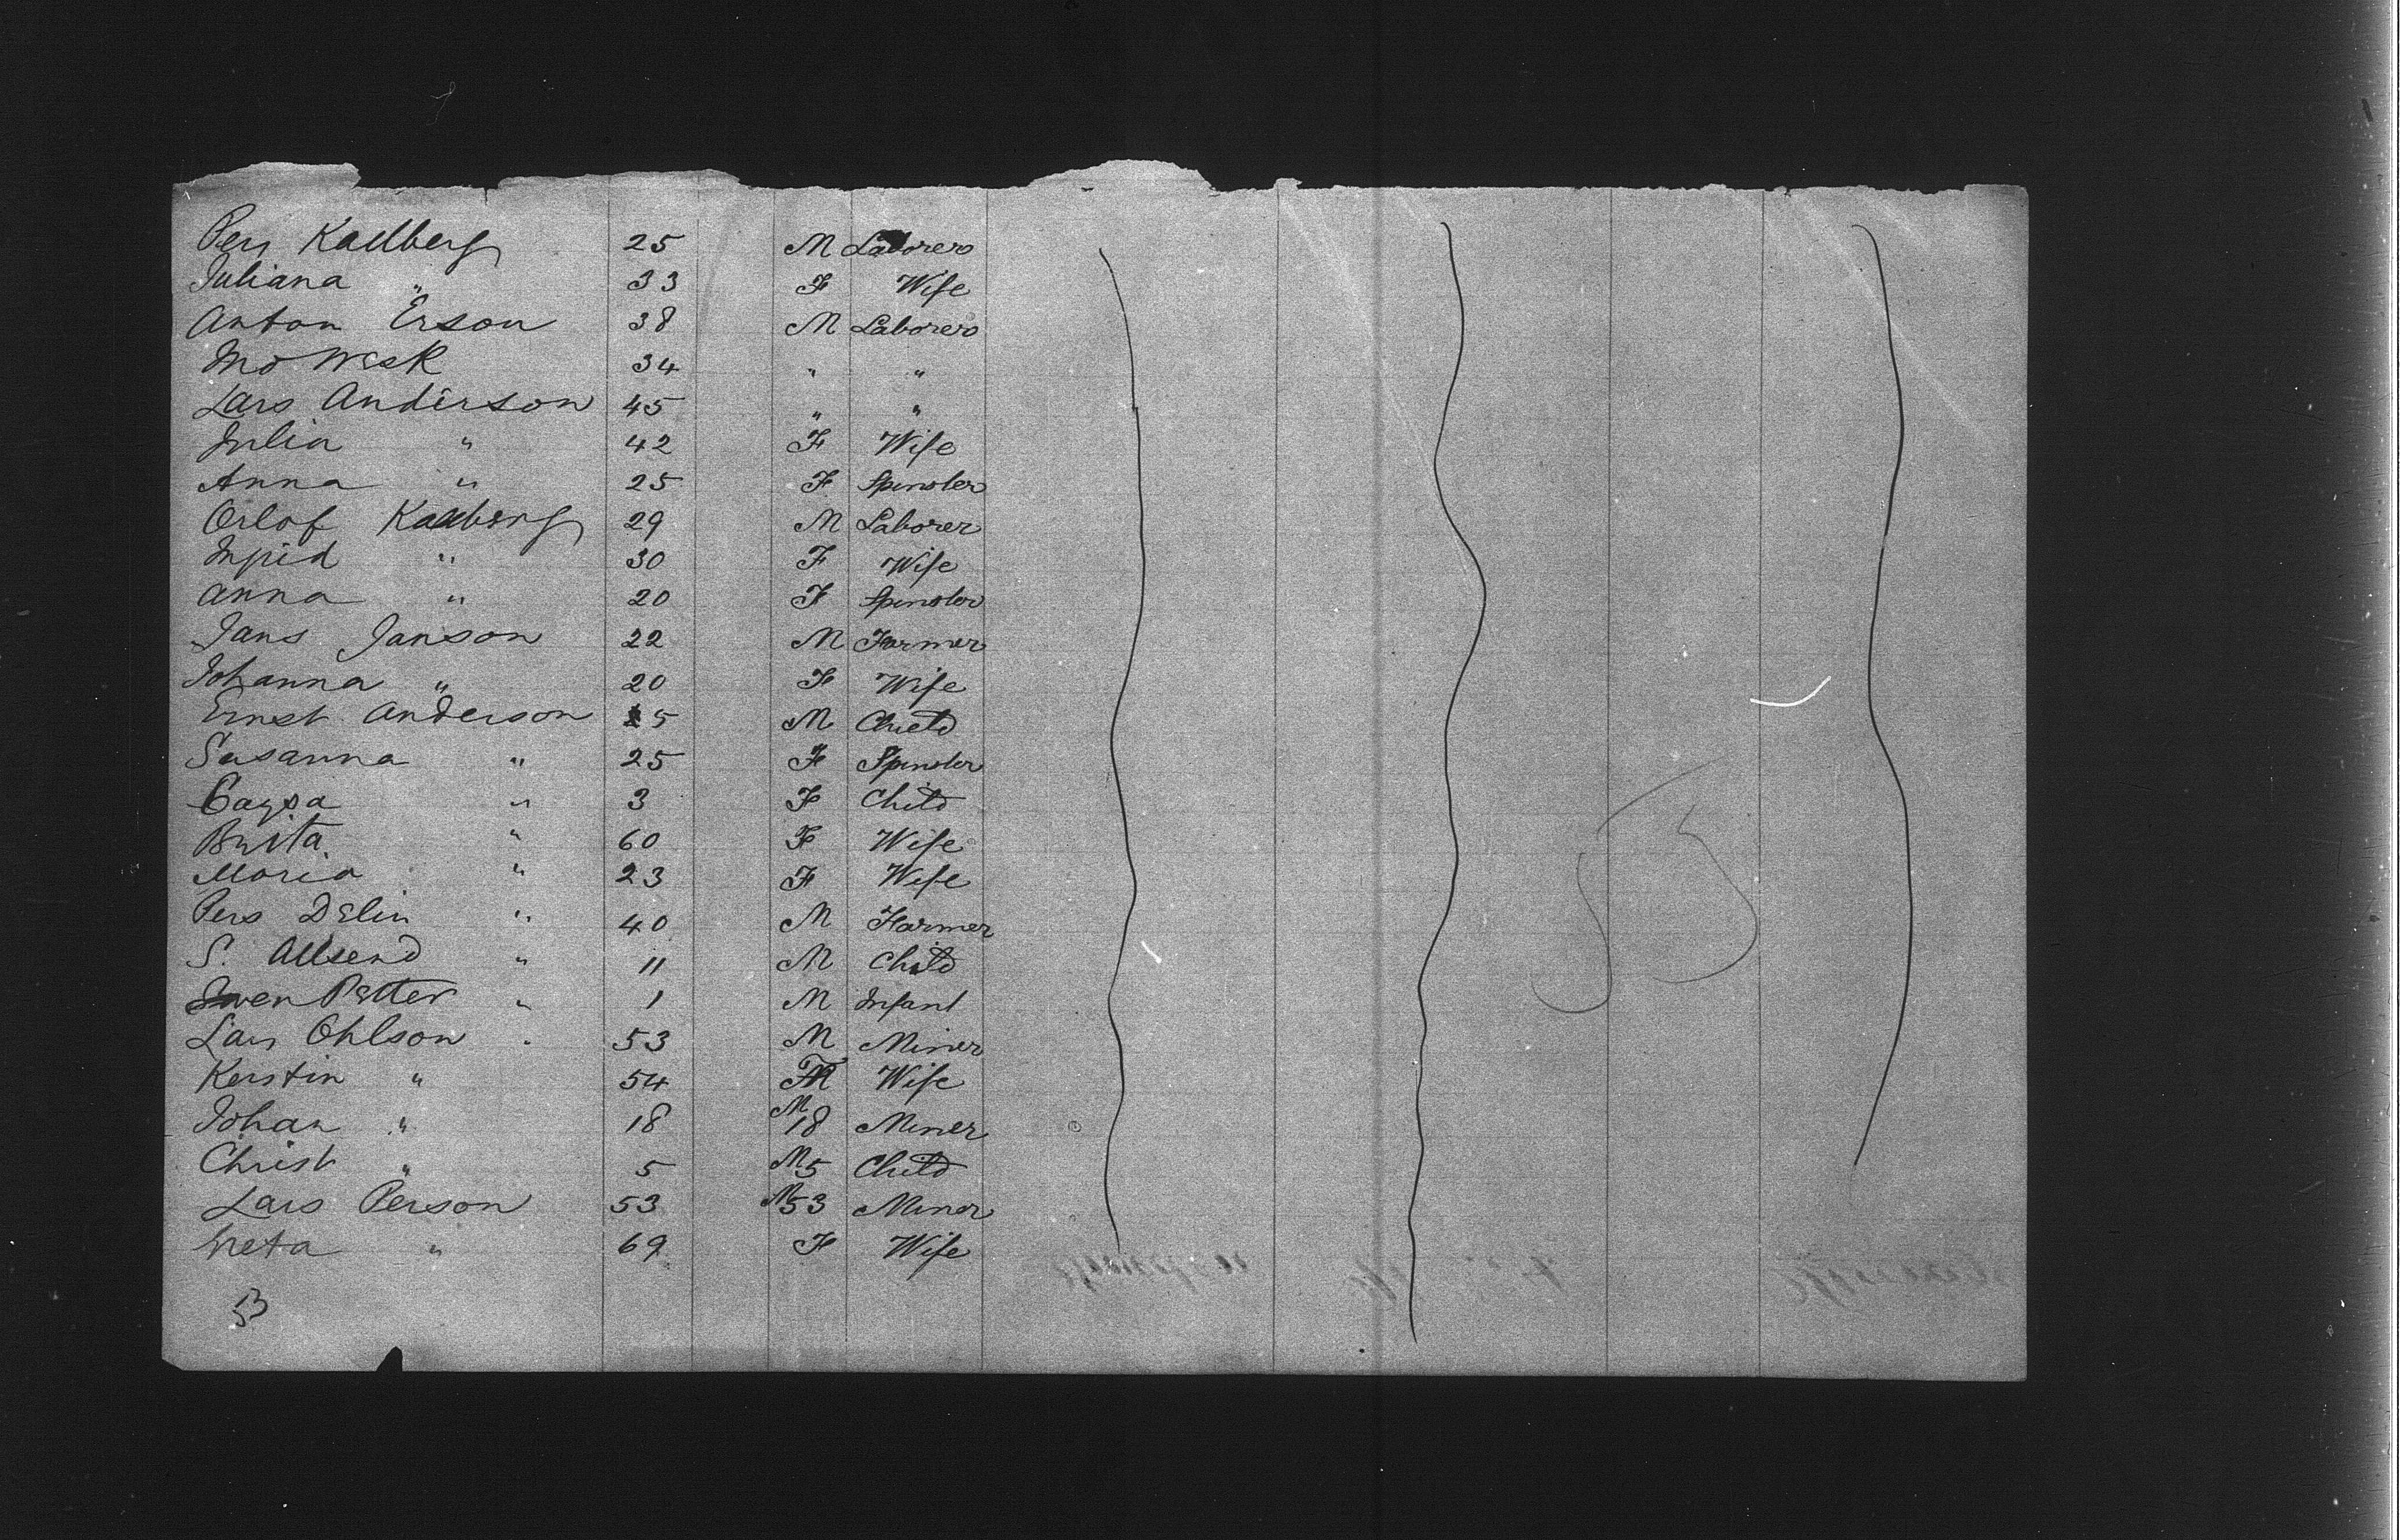 Pers Kallberg 25 M Laborer
Juliana " 33 F Wife
Anton Erson 38 M Laborer
Mo Wesk 34 " "
Lars Anderson 45 " "
Julia " 42 F Wife
Anna " 25 F Spinster
Orlof Kallberg 29 M Laborer
Inpid " 30 F Wife
Anna " 20 F Spinster
Jans Janson 22 M Farmer
Johanna " 20 F Wife
Ernst Anderson 5 M Child
Susanna " 25 F Spinster
Caysa " 3 F Child
Brita " 60 F Wife
Maria " 23 F Wife
Pers Delin " 40 M Farmer
S. Allsend " 11 M Child
Swen Petter " 1 M Infant
Lars Ohlson 53 M Miner
Kerstin " 54 F Wife
Johan " 18 M 18 Miner
Christ " 5 M 5 Child
Lars Person 53 M 53 Miner
Greta " 69 F Wife
53